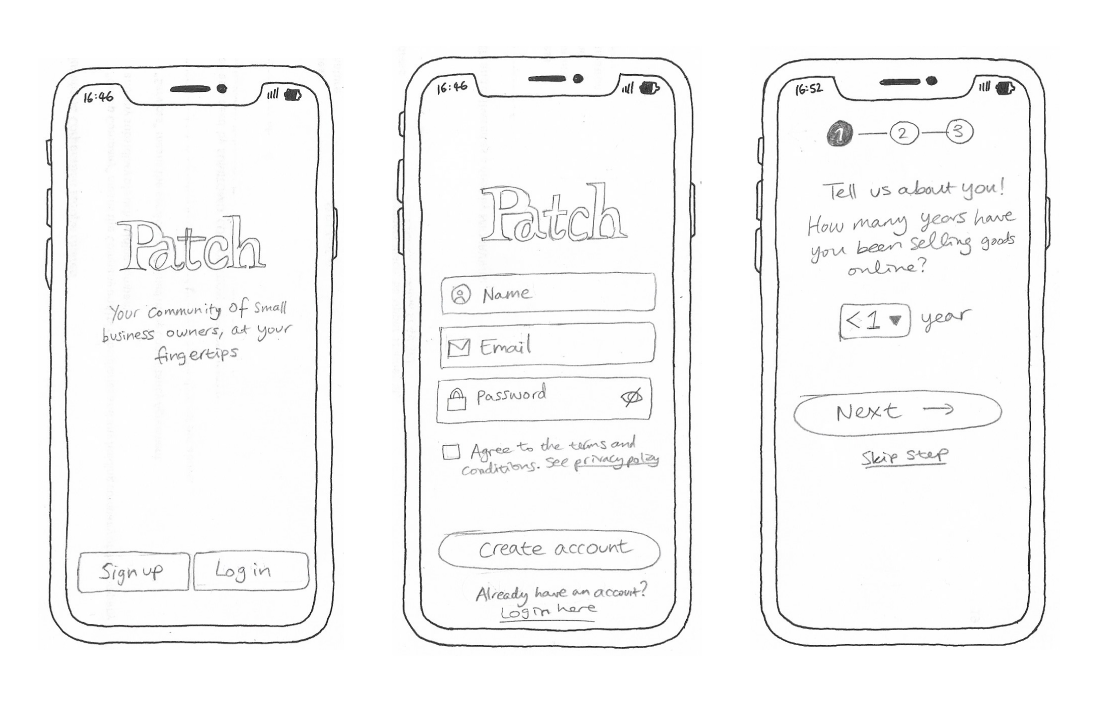 16:46
Patch
Your community of small
business owners, at your
fingertips
Sign up
Log in
16:46
Patch
Name
Email
Password
Agree to the terms and
conditions. See privacy policy
Create account
Already have an account?
Log in here
16:52
1
2
3
Tell us about you!
How many years have
you been selling goods
online?
<1 ▼ year
Next →
Skip step